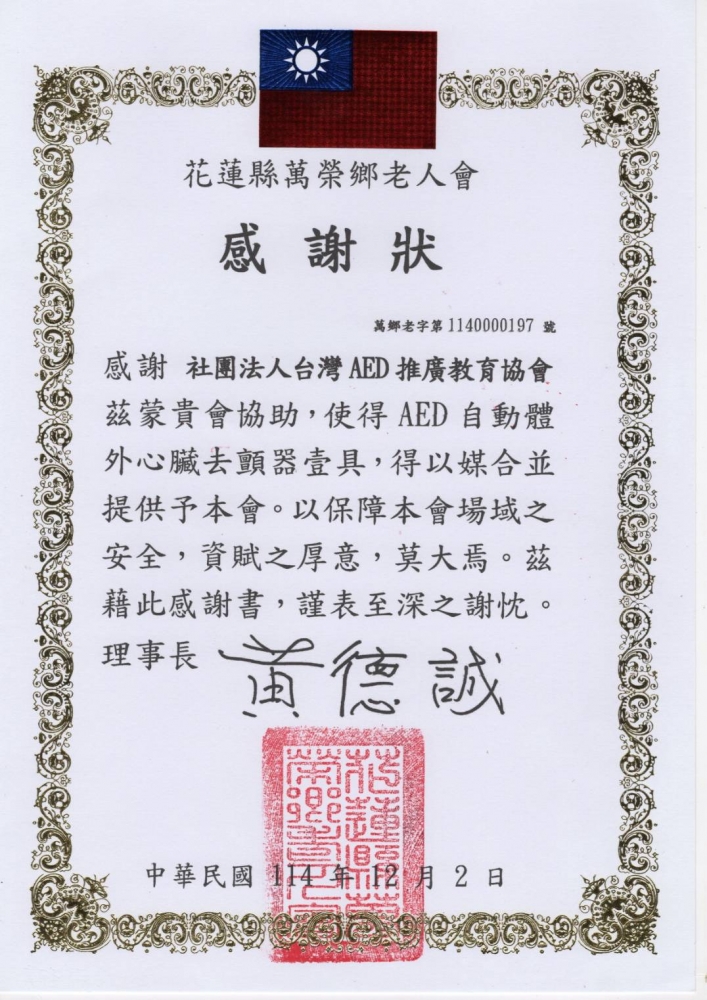 花蓮縣萬榮鄉老人會
感謝狀
萬鄉老字第1140000197 號
感謝 社團法人台灣 AED 推廣教育協會
茲蒙貴會協助，使得 AED 自動體
外心臟去顫器壹具，得以媒合並
提供予本會。以保障本會場域之
安全，資賦之厚意，莫大焉。茲
藉此感謝書，謹表至深之謝忱。
理事長 黃德誠
中華民國 114 年 12 月 2 日